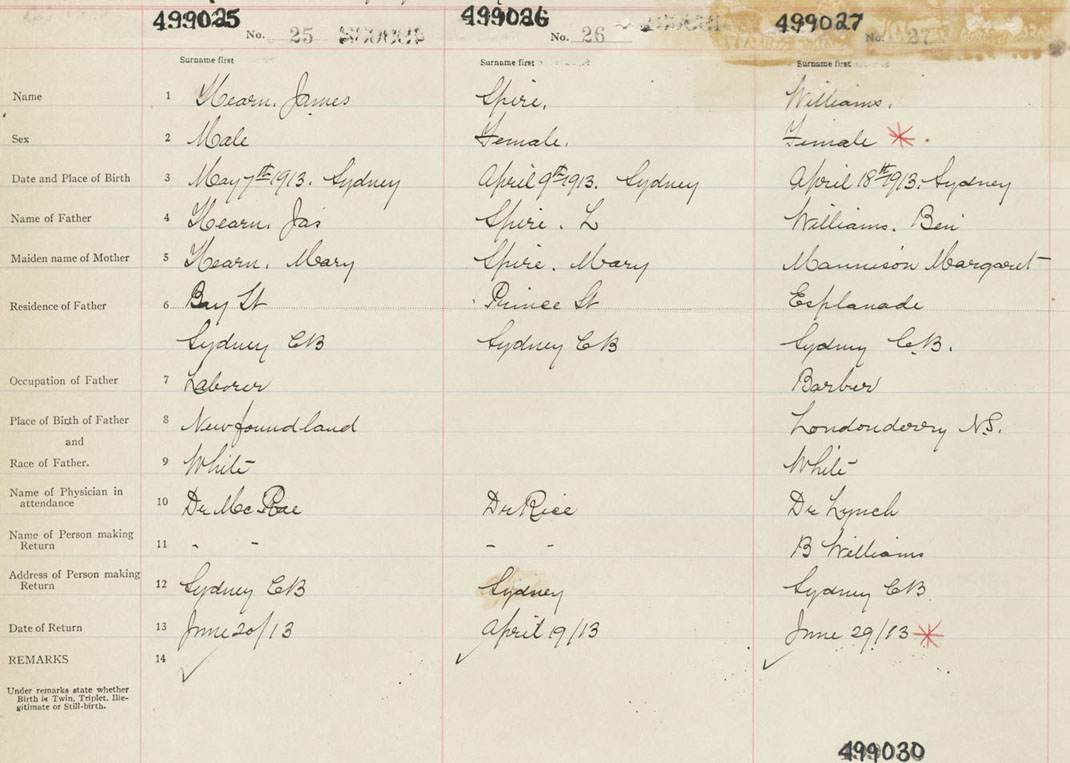 499025 499026 499027
No. 25 No. 26 No. 27
Surname first Surname first Surname first
Name 1 Hearn, James Spire, Williams.
Sex 2 Male Female. Female
Date and Place of Birth 3 May 7th 1913. Sydney April 9th 1913. Sydney April 18th 1913. Sydney
Name of Father 4 Hearn, Jas Spire. L Williams. Ben
Maiden name of Mother 5 Hearn, Mary Spire. Mary Mannison Margaret
Residence of Father 6 Bay St Prince St Esplanade
Sydney CB Sydney CB Sydney C.B.
Occupation of Father 7 Laborer Barber
Place of Birth of Father 8 Newfoundland Londonderry N.S.
and
Race of Father. 9 White White
Name of Physician in
attendance 10 Dr McRae Dr Rice Dr Lynch
Name of Person making
Return 11 - - - - B Williams
Address of Person making
Return 12 Sydney CB Sydney Sydney CB
Date of Return 13 June 20/13 April 19/13 June 29/13
REMARKS 14
Under remarks state whether
Birth is Twin, Triplet, Ille-
gitimate or Still-birth.
499030